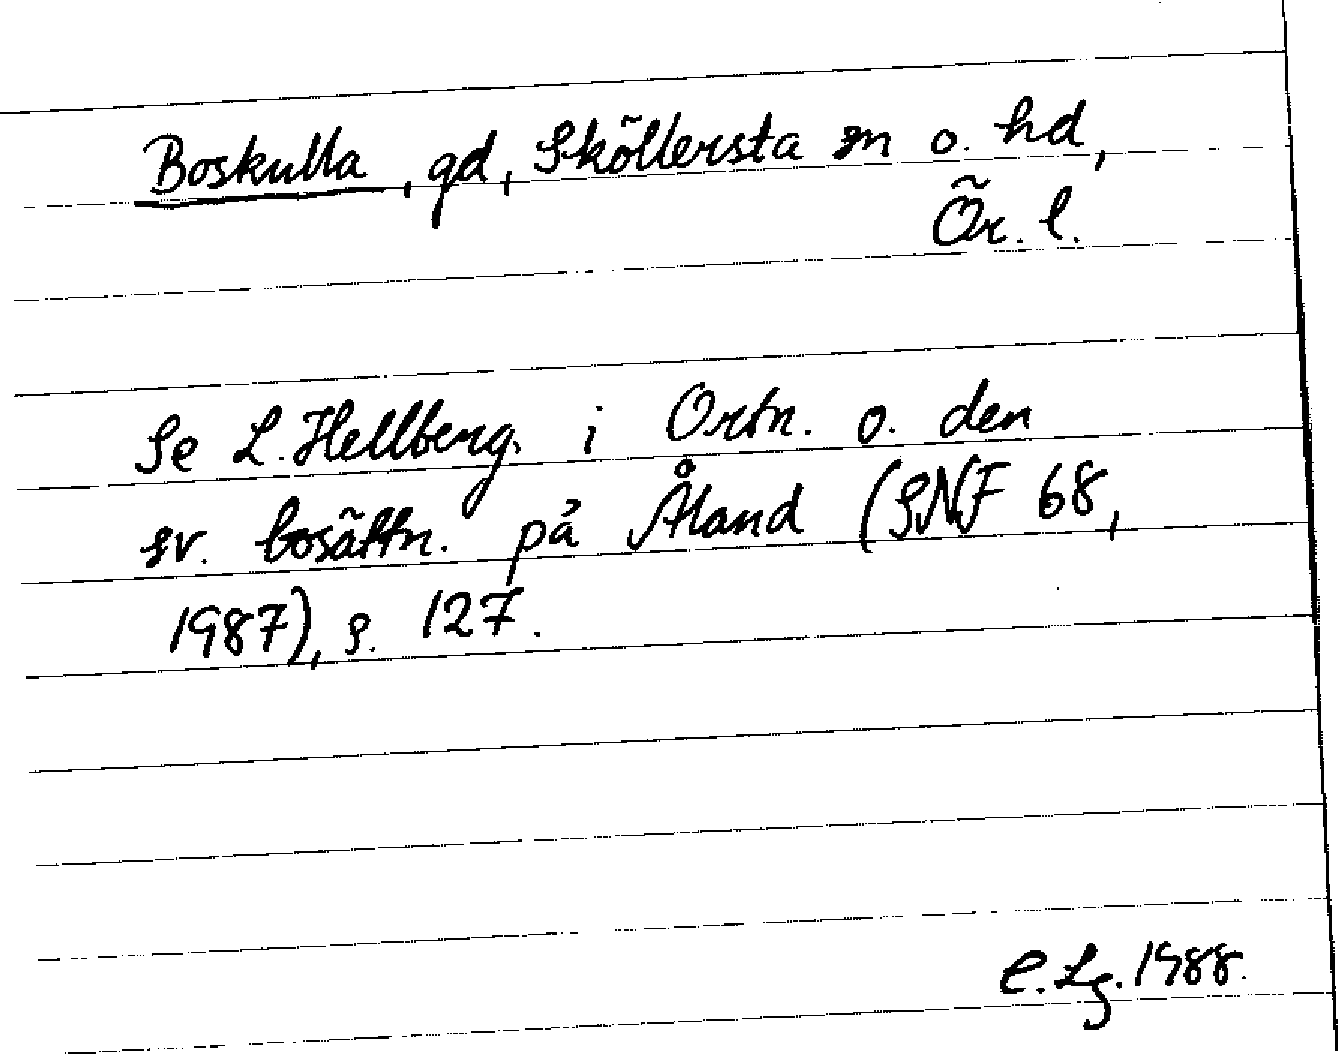 Boskulla, gd, Sköllersta sn o. hd,
Ör. l.
Se L. Hellberg i Ortn. o. den
sv. bosättn. på Åland (SNF 68,
1987), s. 127.
C. Lg. 1988.